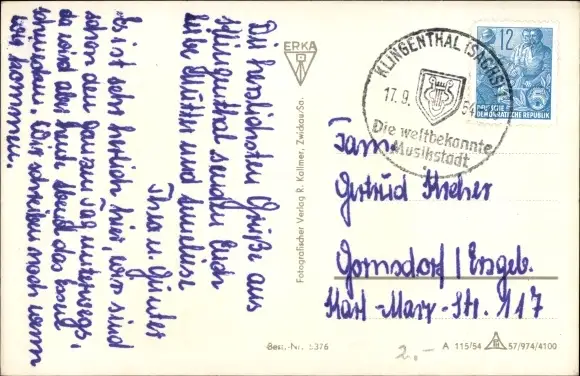 Die herzlichsten Grüße aus
Klingenthal senden Euch
liebe Mutter und Anneliese
Thea u. Günter
Es ist sehr herrlich hier, wir sind
schon den ganzen Tag unterwegs,
da wird aber heute Abend das
schmecken. Wir schreiben noch wenn
wir kommen.
ERKA
Fotografischer Verlag R. Kallmer, Zwickau/Sa.
KLINGENTHAL (SACHS)
17.9. 54
Die weltbekannte
Musikstadt
12
DEUTSCHE
DEMOKRATISCHE REPUBLIK
Fam.
Gertrud
Gornsdorf / Erzgeb.
Karl-Marx-Str. 117
Best.-Nr. 5376
2.-
A 115/54 57/974/4100